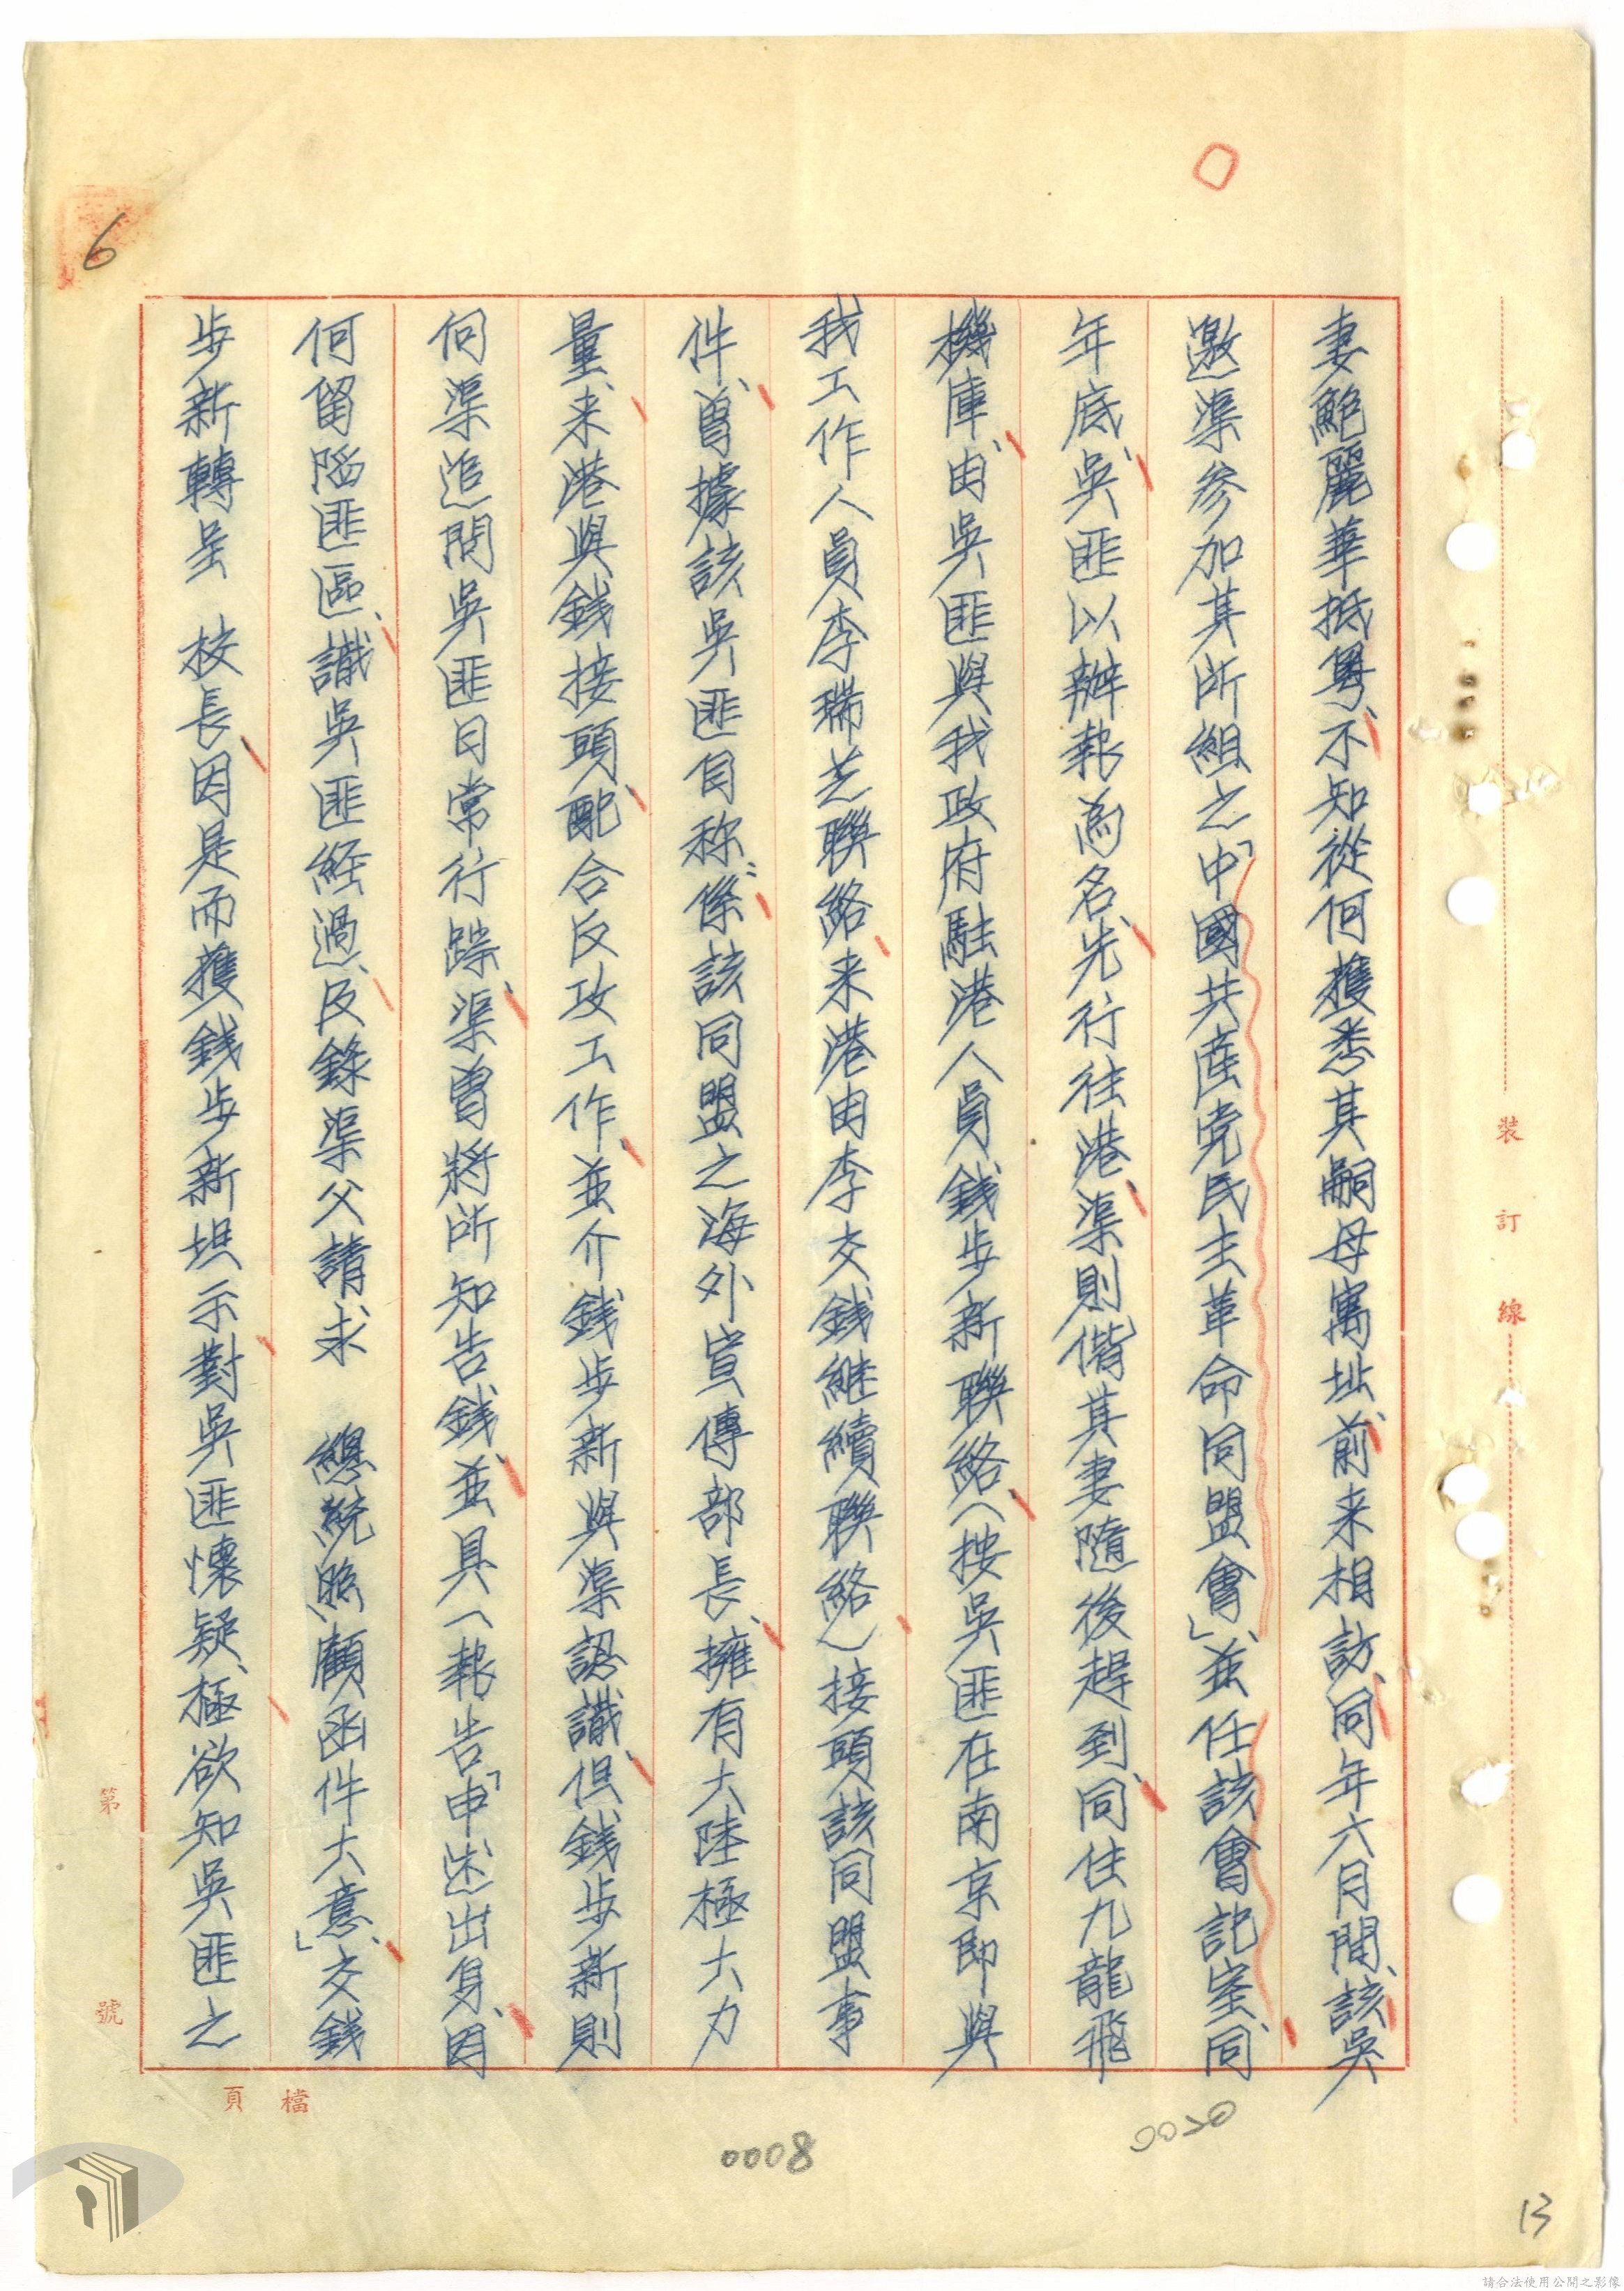 妻鮑麗華抵粵、不知從何獲悉其嗣母寓址、前来相訪、同年六月間、該吳
邀渠參加其所組之「中國共產党民主革命同盟會」、並任該會記室、同
年底、吳匪以辦報為名、先行往港、渠則偕其妻隨後趕到、同住九龍飛
機庫、由吳匪與我政府駐港人員錢步新聯絡（按吳匪在南京即與
我工作人員李瑞芝聯絡来港由李交錢継續聯絡）接頭該同盟事
件、曾據該吳匪自称：係該同盟之海外宣傳部長、擁有大陸極大力
量、来港與錢接頭、配合反攻工作、並介錢步新與渠認識、但錢步新則
向渠追問吳匪日常行踪、渠曾將所知告錢、並具（報告「申述出身、因
何留陷匪區、識吳匪経過、及錄渠父請求　總統照顧函件大意」、交錢
步新轉呈　校長、因是而獲錢步新坦示對吳匪懷疑、極欲知吳匪之
6
0008
0500
13
裝
訂
線
第
號
檔
頁
請合法使用公開之影像